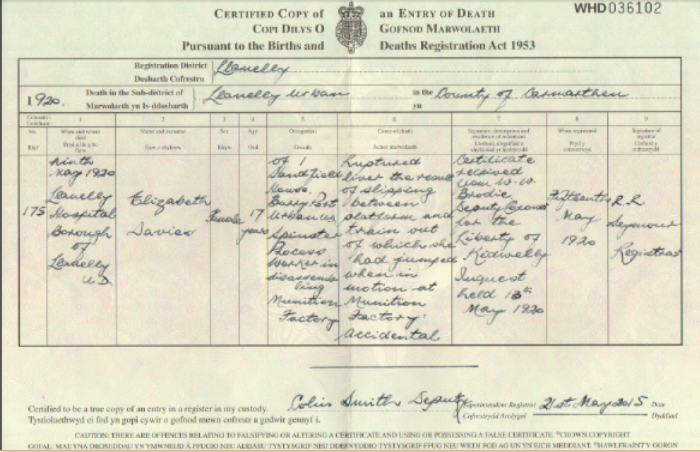 WHD036102
CERTIFIED COPY of an ENTRY OF DEATH
COPI DILYS O GOFNOD MARWOLAETH
Pursuant to the Births and Deaths Registration Act 1953
Registration District Llanelly
Dosbarth Cofrestru
1920. Death in the Sub-district of Llanelly Urban in the County of Carmarthen
Marwolaeth yn Is-ddosbarth yn
1 2 3 4 5 6 7 8 9
No. When and where died Name and surname Sex Age Occupation Cause of death Signature, description and residence of informant When registered Signature of registrar
175
Ninth
May 1920
Llanelly
Hospital
Borough
of
Llanelly
U.D.
Elizabeth
Davies
Female
17
years
of 1
Sandfield
House
Burry Port
Urban U.D.
Spinster
Process
Worker in
disassemb
ling
Munition
Factory
Ruptured
liver the result
of slipping
between
platform and
train out
of which she
had jumped
when in
motion at
Munition
Factory:
Accidental
Certificate
received
from W.W.
Brodie
Deputy Coroner
for the
Liberty of
Kidwelly
Inquest
held 13th
May 1920
Fifteenth
May
1920
R.R.
Seymour
Registrar
Certified to be a true copy of an entry in a register in my custody. Colin Smith Deputy Superintendent Registrar 21st May 2015 Date
Tystiolaethwyd ei fod yn gopi cywir o gofnod mewn cofrestr a gadwir gennyf i. Cofrestrydd Arolygol Dyddiad
CAUTION: THERE ARE OFFENCES RELATING TO FALSIFYING OR ALTERING A CERTIFICATE AND USING OR POSSESSING A FALSE CERTIFICATE. ©CROWN COPYRIGHT
GOFAL: MAE YNA DROSEDDAU YN YMWNEUD Â FFUGIO NEU ADDASU TYSTYSGRIF NEU DDEFNYDDIO TYSTYSGRIF FFUG NEU WRTH FOD AG UN YN EICH MEDDIANT. ©HAWLFRAINT Y GORON